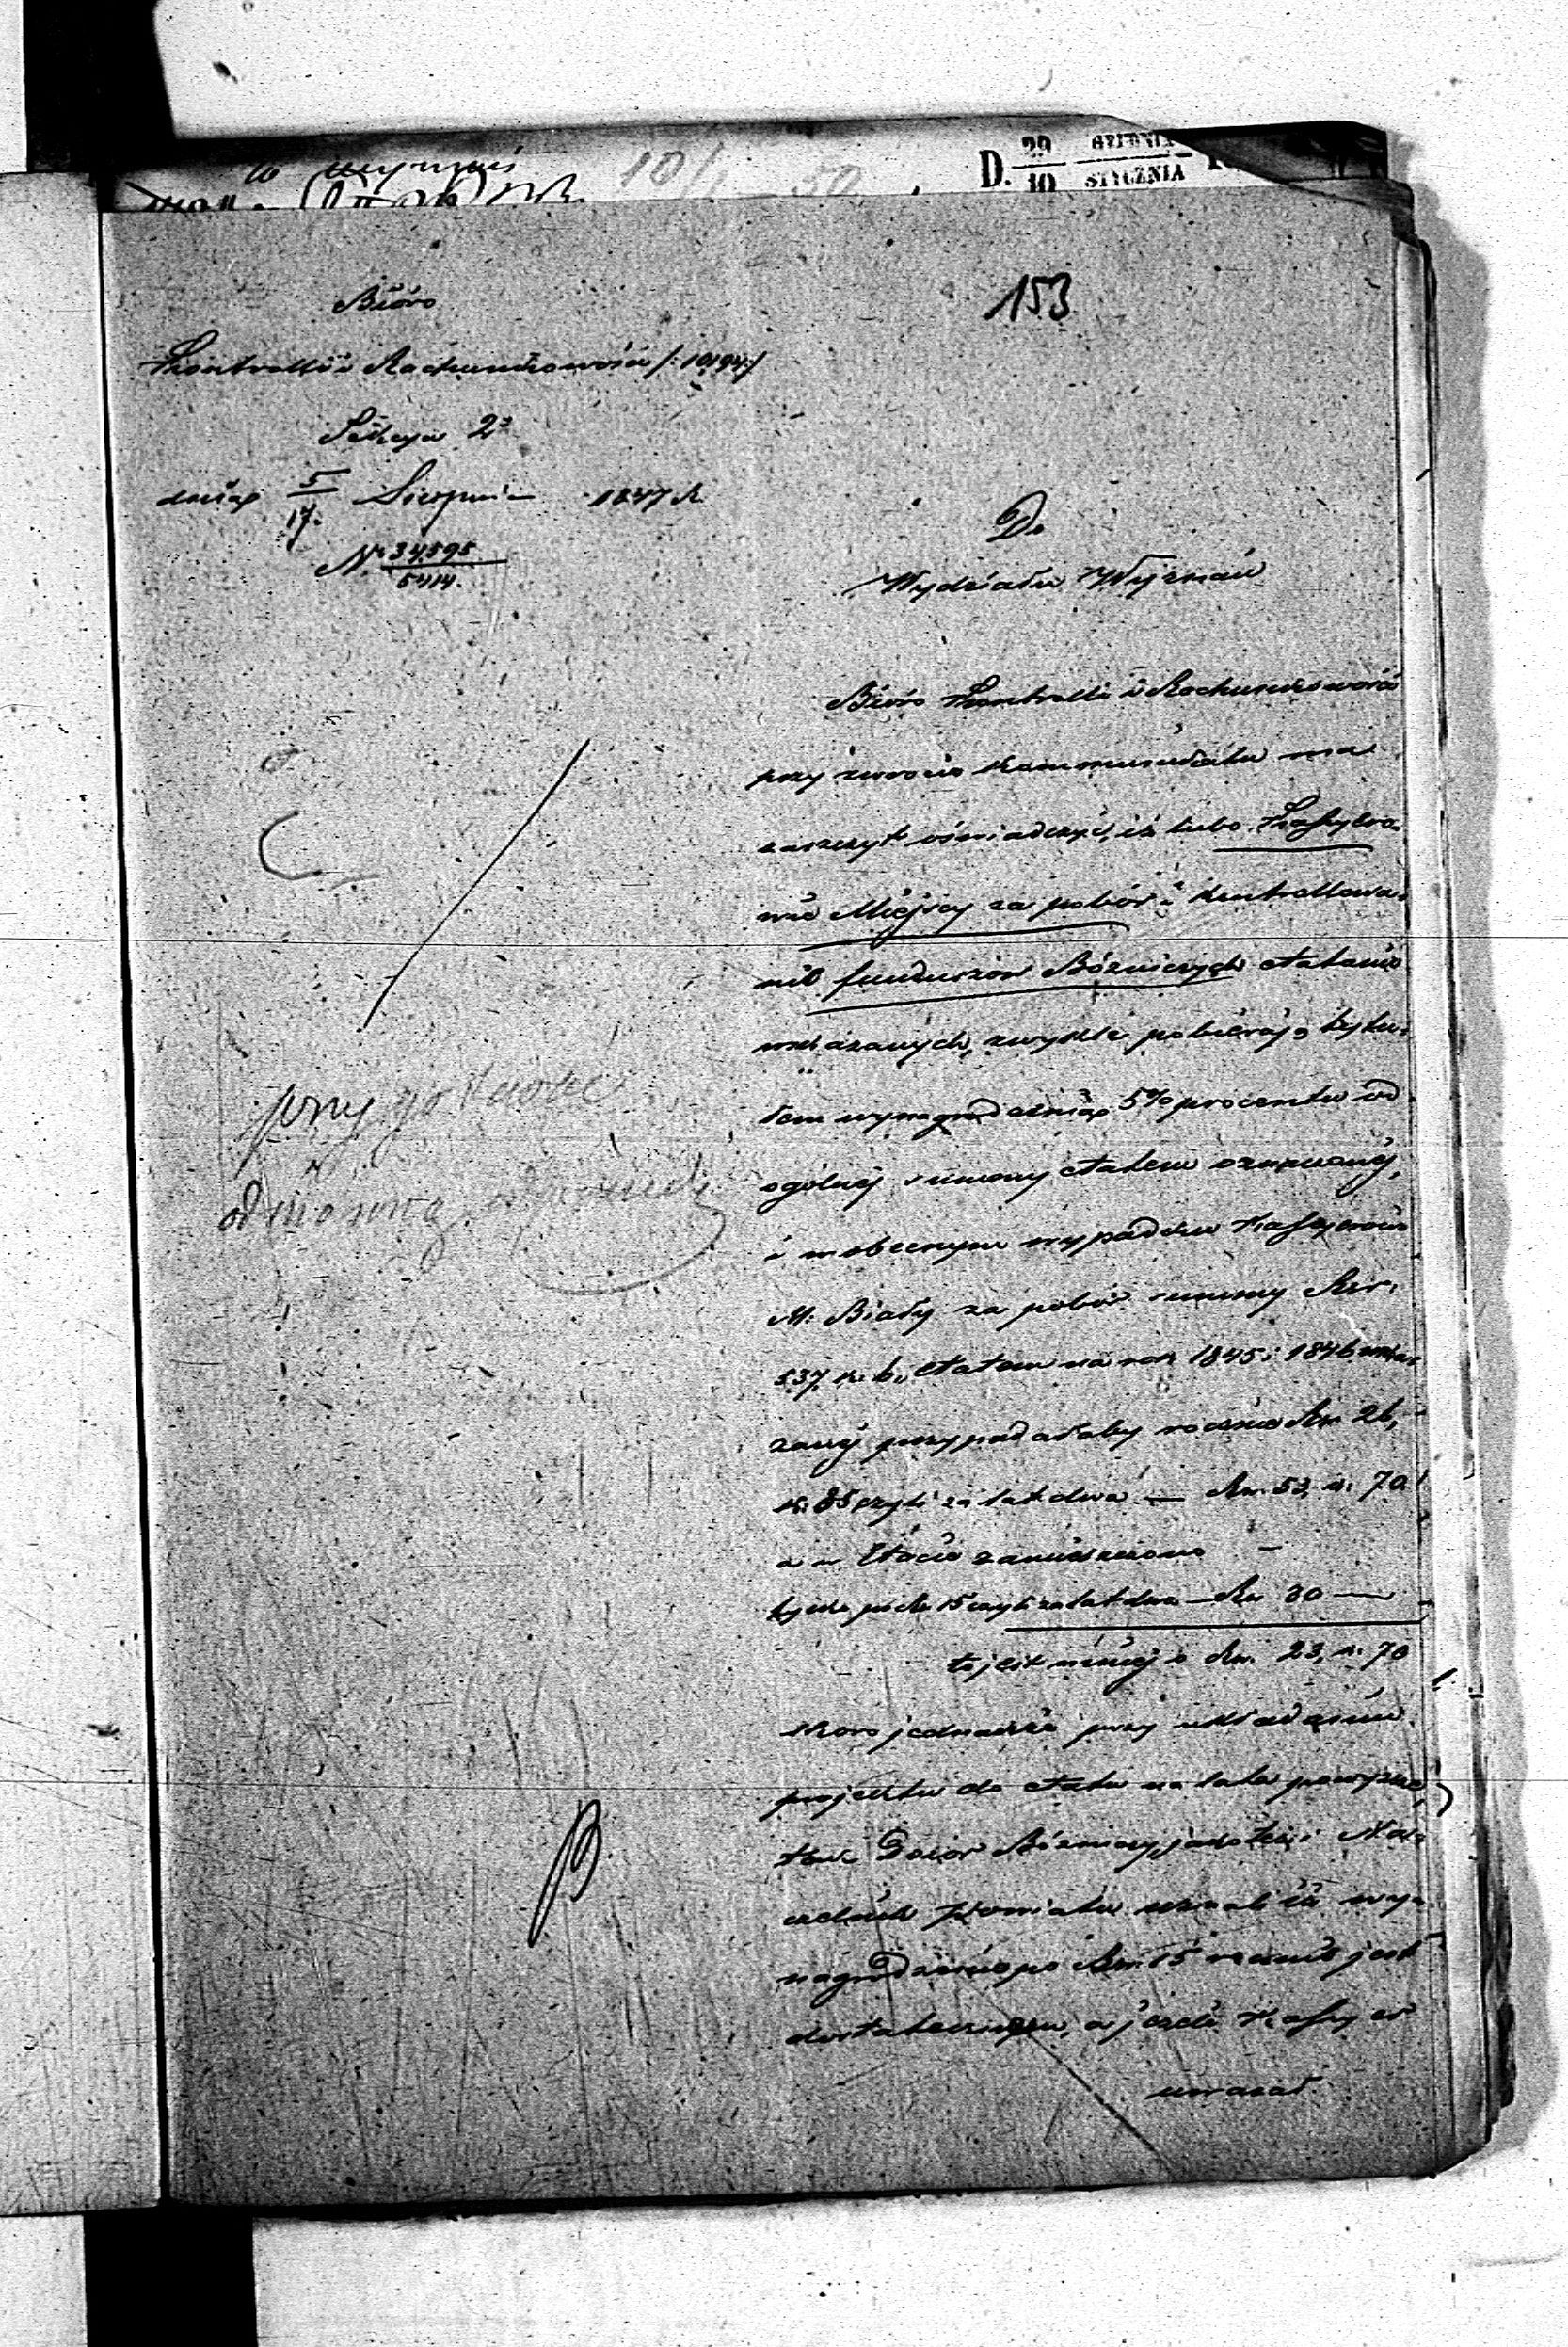 D. 29/10 GRUDNIA/STYCZNIA
10/1 50
153
Bióro
Kontrolli i Rachunkowości /:10194:/
Sekcya 2ª
dnia 5/17 Sierpnia 1847 R.
№ 34595/5414.
Do
Wydziału Wyznań
Bióro Kontrolli i Rachunkowości
przy zwrocie kommunikatu ma
zaszczyt oświadczyć, iż lubo Kassyero-
wie Miejscy za pobór i kontrollowa-
nie funduszów Bóżniczych etatami
wskazanych, zwykle pobierają tytu-
łem wynagrodzenia 5% procentu od
ogólnej summy etatem oznaczonej,
i w obecnym wypadku Kassyerowi
M. Biały za pobór summy Rsr.
537 k. etatem na rok 1845 i 1846 wska-
zanej przypadałaby rocznie Rsr. 26,
k. 85 czyli za lat dwa — Rsr. 53, k. 70
a w Etacie zamieszczono —
tylko po Rs. 15 czyli za lat dwa — Rsr. 30 —
to jest mniej o Rsr. 23, k. 70
skoro jednakże przy układaniu
projektu do etatu na lata powyższe,
tak Dozór Bóżniczy, jako też i Na-
czelnik Powiatu uznali iż wyna-
nagrodzenie po Rsr. 15 rocznie jest
dostatecznem, a jeżeli Kassyer
uważał
przygotować
odmowną